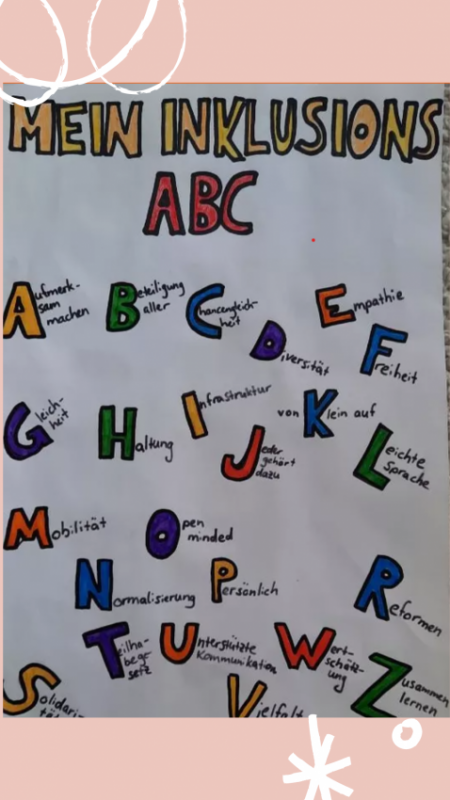 MEIN INKLUSIONS
ABC
Aufmerk-
sam
machen
Beteiligung
aller
Chancengleich-
heit
Diversität
Empathie
Freiheit
Gleich-
heit
Haltung
Infrastruktur
Jeder
gehört
dazu
von Klein auf
Leichte
Sprache
Mobilität
Open
minded
Normalisierung
Persönlich
Reformen
Teilha-
begе-
setz
Unterstützte
Kommunikation
Wert-
schätz-
ung
Zusammen
lernen
Solidari-
tät
Vielfalt